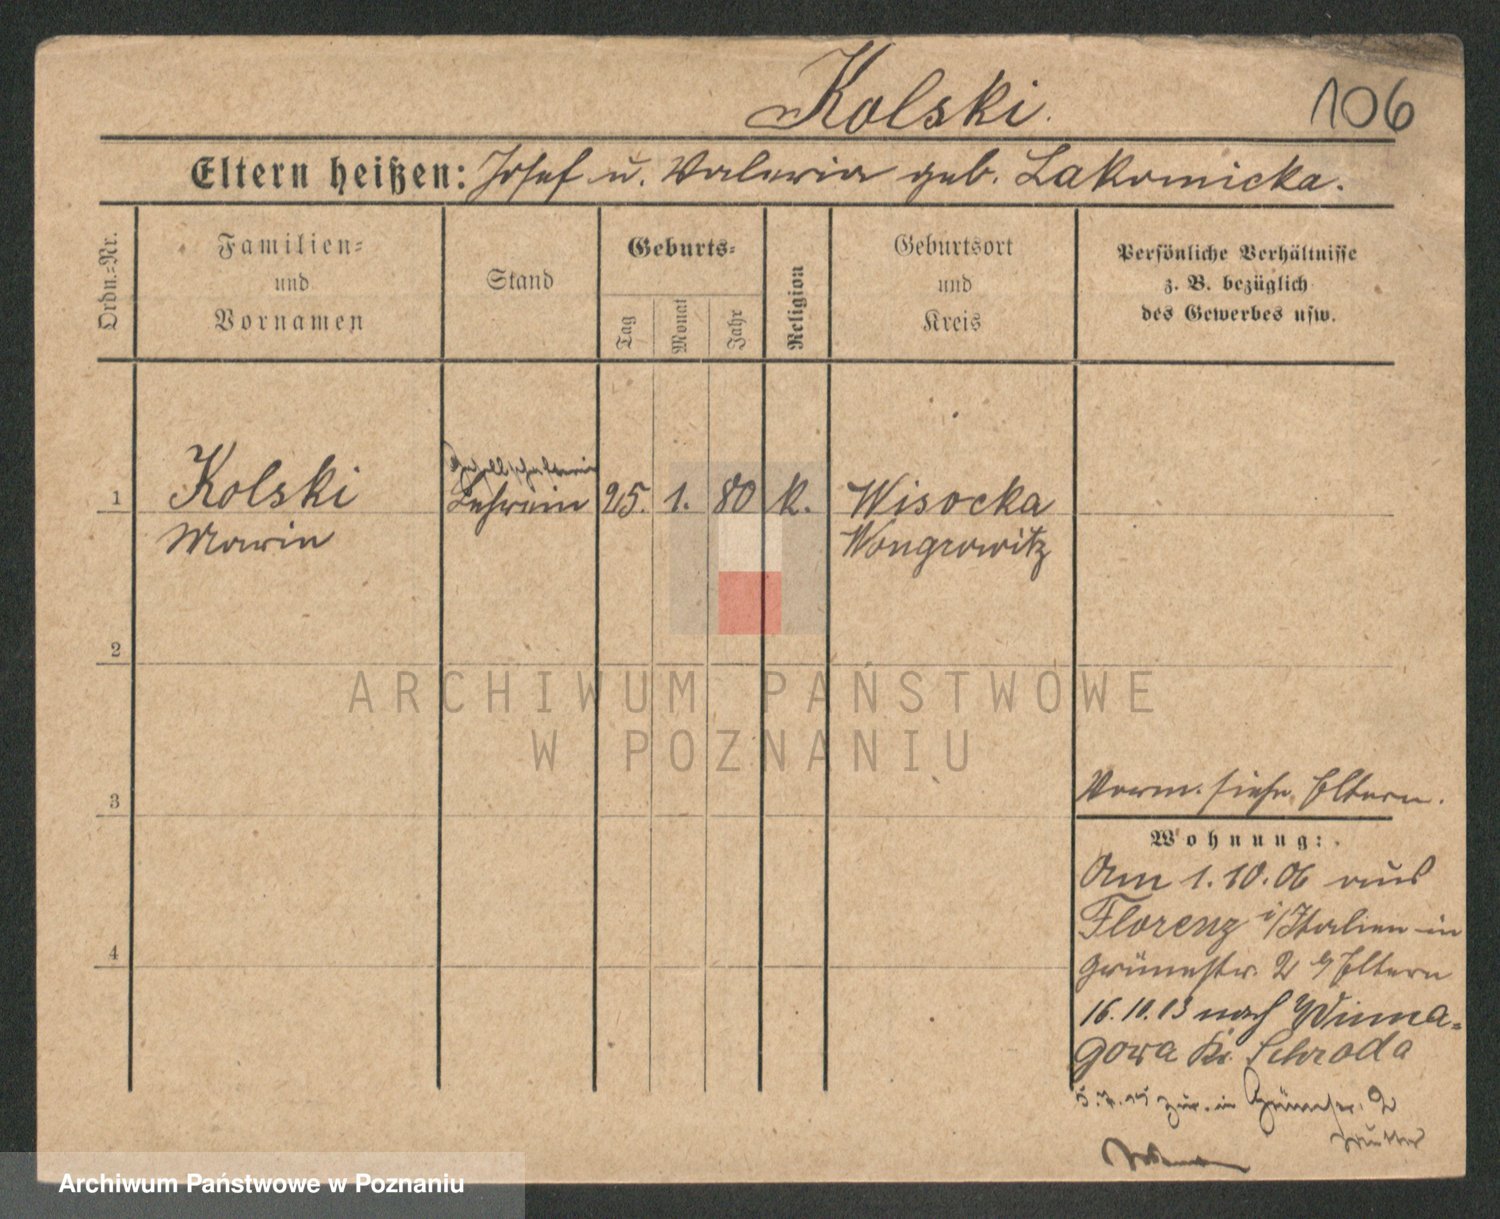 Kolski.
106
Eltern heißen: Josef u. Valeria geb. Lakomicka.
Ordn.=Nr.
Familien=
und
Vornamen
Stand
Geburts=
Tag
Monat
Jahr
Religion
Geburtsort
und
Kreis
Persönliche Verhältnisse
z. B. bezüglich
des Gewerbes usw.
1
Kolski
Maria
Gesellschafterin
Lehrerin
25. 1. 80 k.
Wisocka
Wongrowitz
2
3
4
Verm. siehe Eltern.
Wohnung:
Am 1.10.06 aus
Florenz i/Italien in
Grünestr. 2 b/Eltern
16.10.13 nach Winna=
gora Kr. Schroda
zur. in Grünestr. 2
Mutter
ARCHIWUM PAŃSTWOWE
W POZNANIU
Archiwum Państwowe w Poznaniu